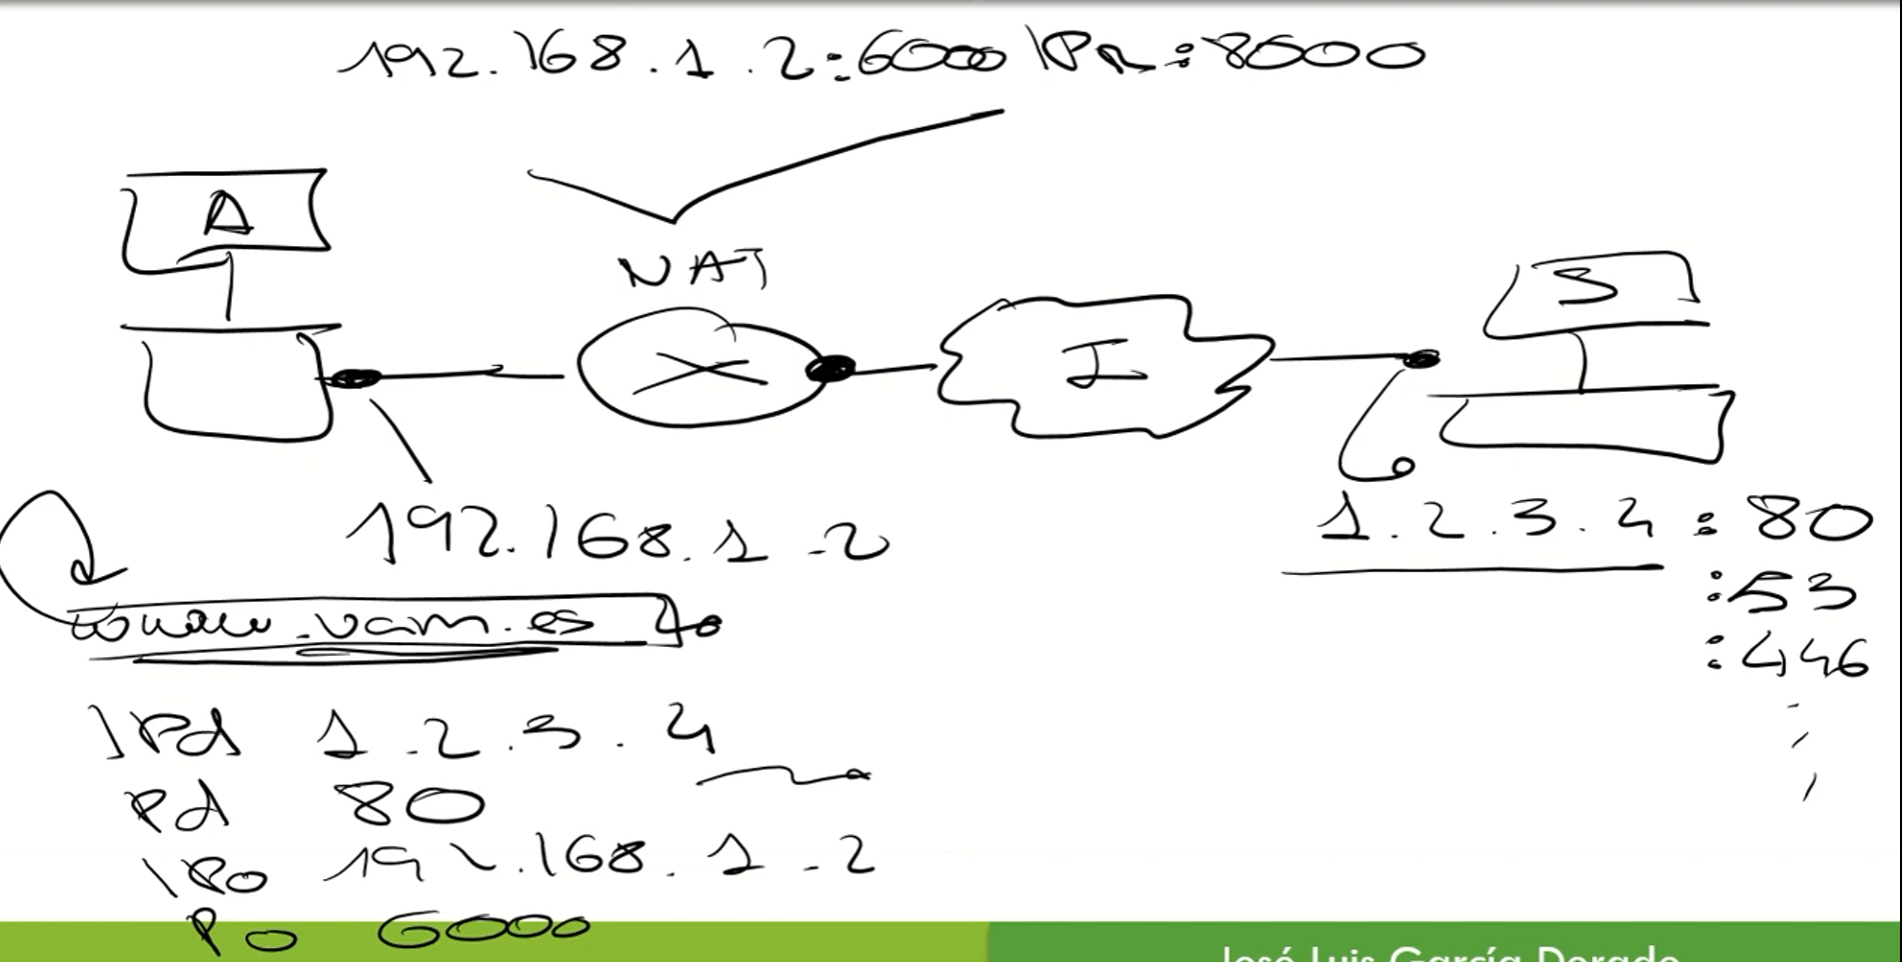 192.168.1.2:6000 IPR:8000
A
NAT
I
S
192.168.1.2
1.2.3.4:80
:53
:446
www.uam.es
IPd 1.2.3.4
Pd 80
IPo 192.168.1.2
Po 6000
José Luis García Dorado